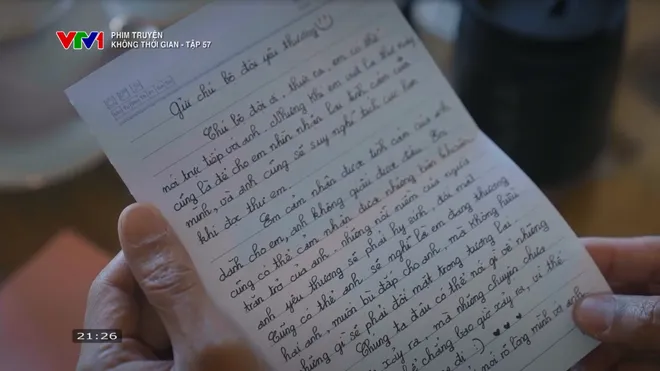 VTV1
PHIM TRUYỆN
KHÔNG THỜI GIAN - TẬP 57
Gửi chú bộ đội yêu thương
Chú bộ đội ơi, thực ra, em có thể
nói trực tiếp với anh. Nhưng khi em viết lá thư này
cũng là để cho em nhìn nhận lại tình cảm của
mình, và anh cũng sẽ suy nghĩ tích cực hơn
khi đọc thư em.
Em cảm nhận được tình cảm của anh
dành cho em, anh không giấu được đâu. Em
cũng có thể cảm nhận được những băn khoăn
trăn trở của anh, những nỗi niềm của người
anh yêu thương sẽ phải hy sinh, đối mặt
Cũng có thể anh sẽ nghĩ là em đang thương
hại anh, muốn bù đắp cho anh, mà không hiểu
những gì sẽ phải đối mặt trong tương lai.
Chúng ta đâu có thể nói gì về những
xảy ra, mà những chuyện chưa
chẳng bao giờ xảy ra, vì thế
đi :)
nói rõ lòng mình với anh
21:26